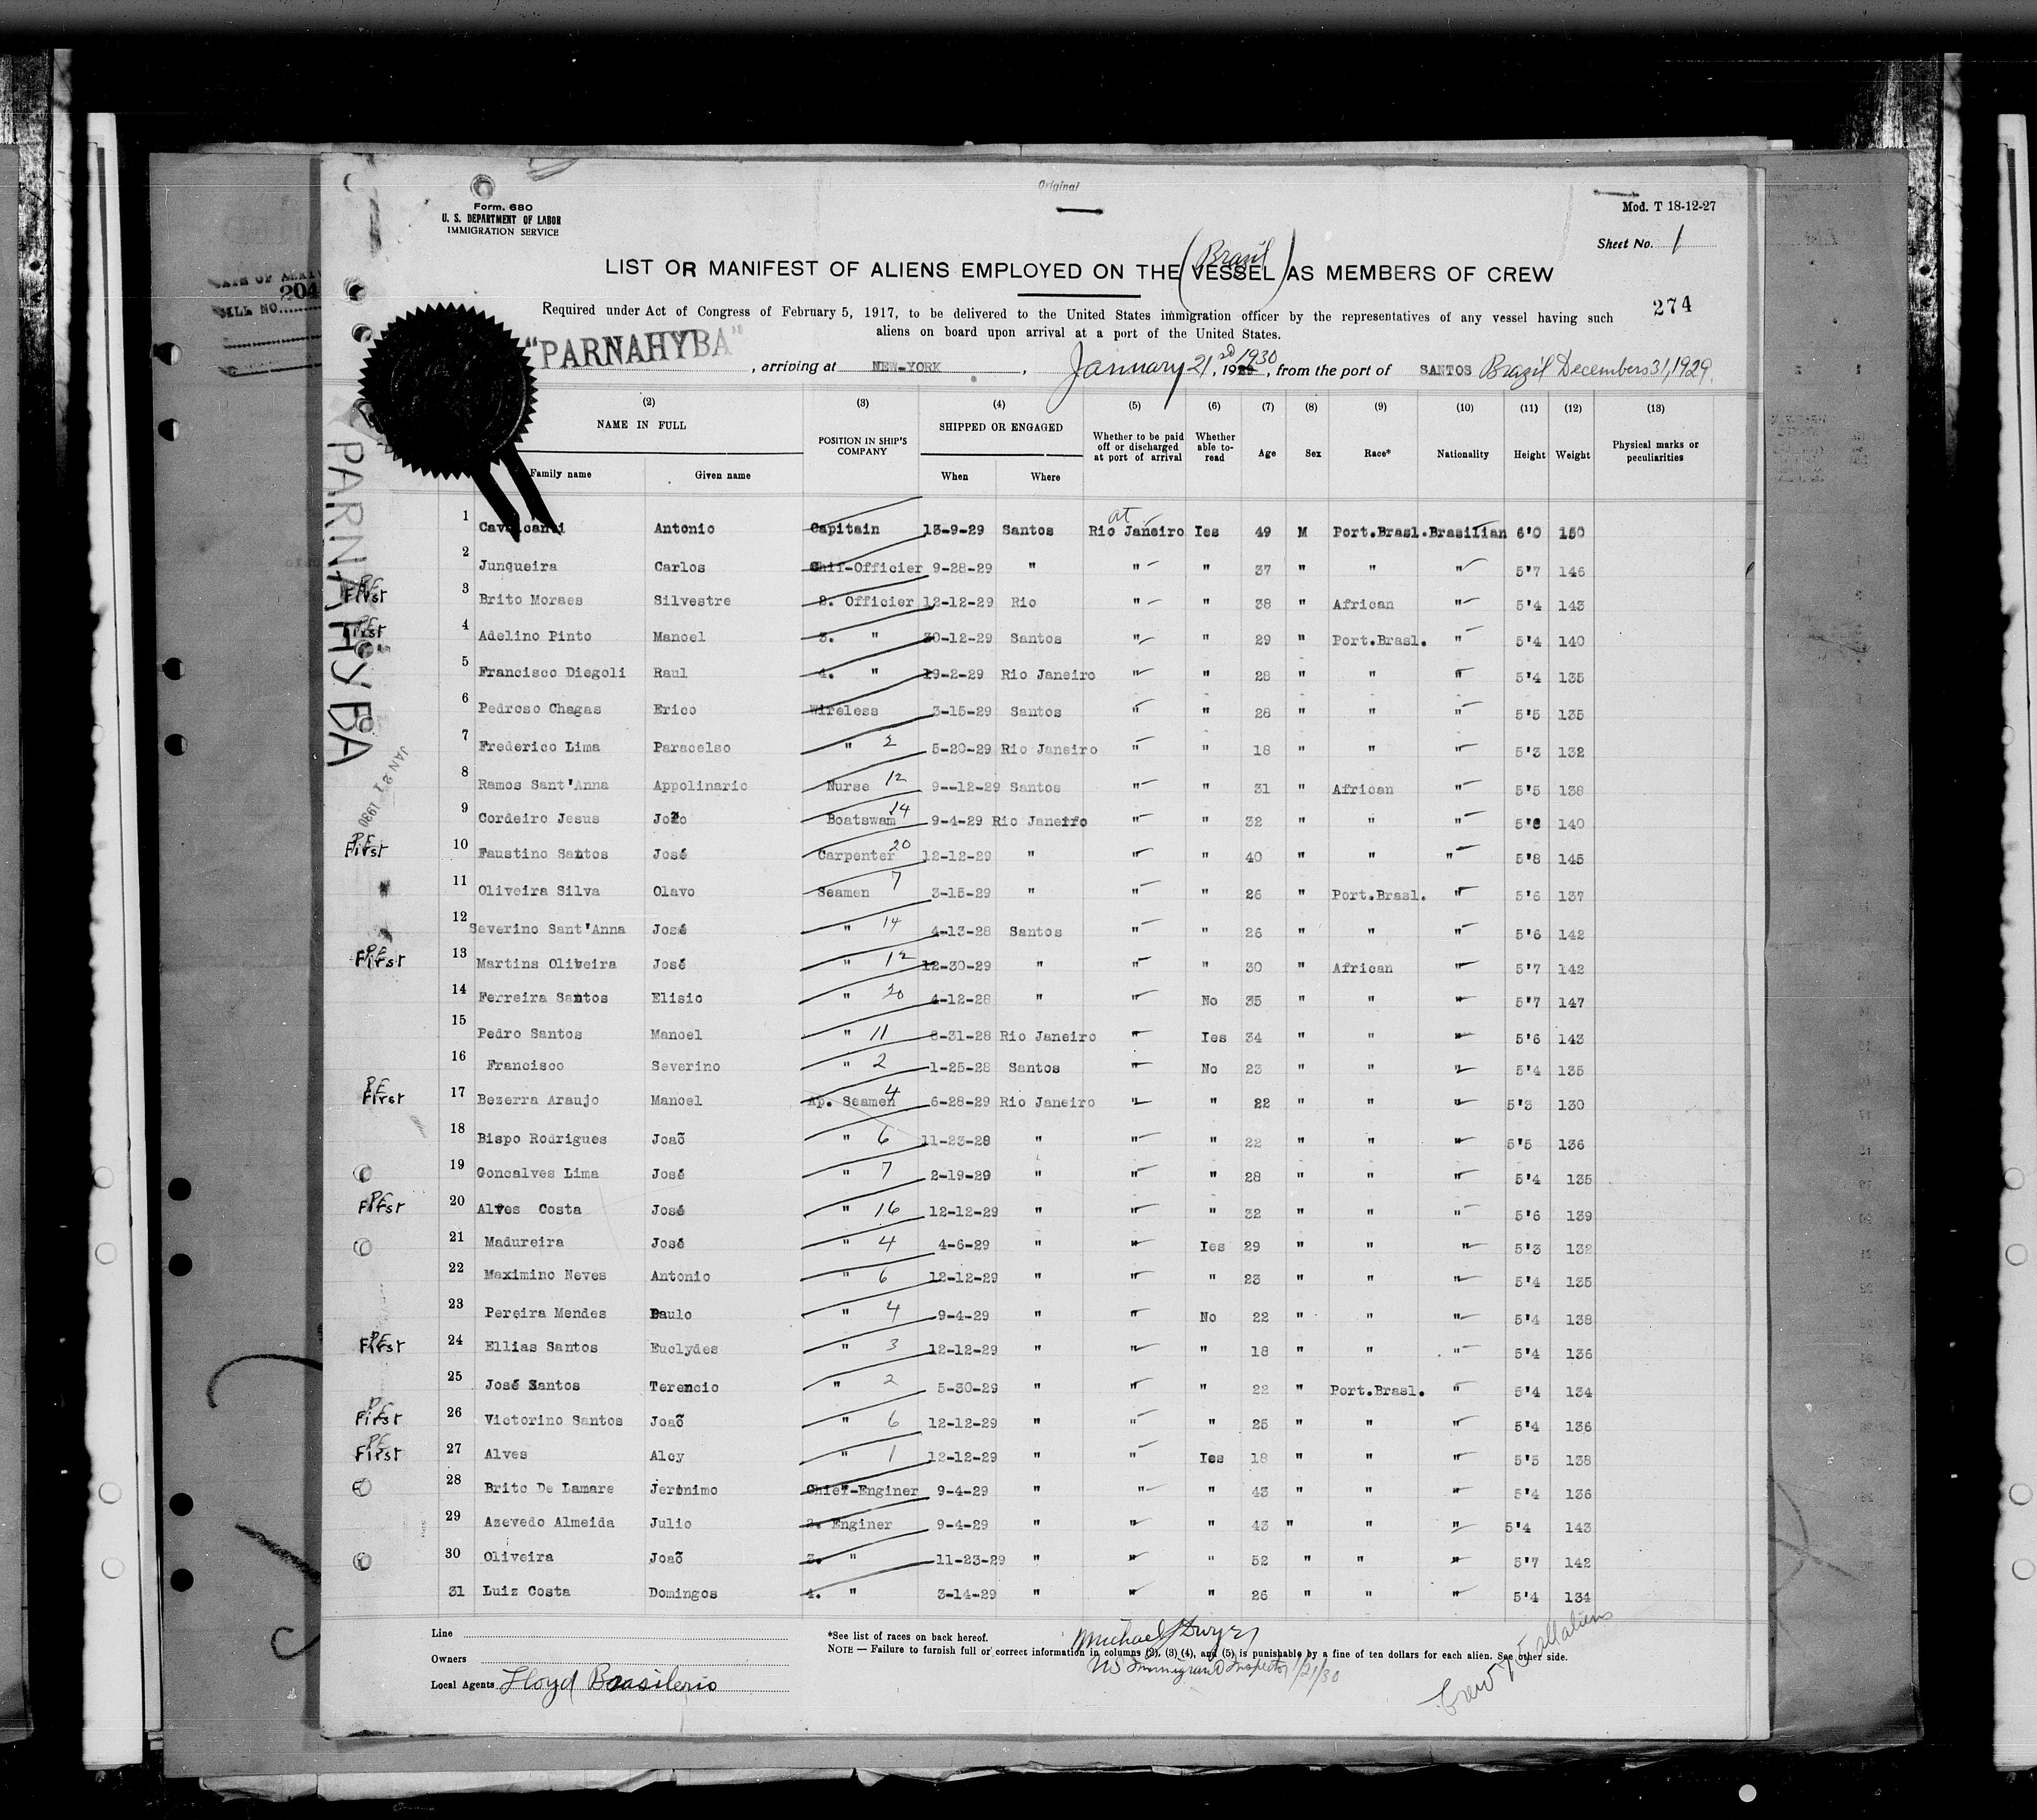 Original
Form. 680
U. S. DEPARTMENT OF LABOR
IMMIGRATION SERVICE
Mod. T 18-12-27
Sheet No. 1
(Brasil)
LIST OR MANIFEST OF ALIENS EMPLOYED ON THE VESSEL AS MEMBERS OF CREW
274
Required under Act of Congress of February 5, 1917, to be delivered to the United States immigration officer by the representatives of any vessel having such
aliens on board upon arrival at a port of the United States.
204
"PARNAHYBA" , arriving at NEW-YORK , January 21, 1930, from the port of SANTOS Brazil Decembers 31, 1929.
(2) (3) (4) (5) (6) (7) (8) (9) (10) (11) (12) (13)
NAME IN FULL POSITION IN SHIP'S COMPANY SHIPPED OR ENGAGED Whether to be paid off or discharged at port of arrival Whether able to- read Age Sex Race* Nationality Height Weight Physical marks or peculiarities
Family name Given name When Where
PARNAHYBA
JAN 21 1930
at
1 Cavalcanti Antonio Capitain 13-9-29 Santos Rio Janeiro Ies 49 M Port.Brasl. Brasilian 6'0 150
2 Junqueira Carlos Chif-Officier 9-28-29 " " " 37 " " " 5'7 146
First 3 Brito Moraes Silvestre 2. Officier 12-12-29 Rio " " 38 " African " 5'4 143
First 4 Adelino Pinto Manoel 3. " 30-12-29 Santos " " 29 " Port.Brasl. " 5'4 140
5 Francisco Diegoli Raul 4. " 19-2-29 Rio Janeiro " " 28 " " " 5'4 135
6 Pedroso Chagas Erico Wireless 3-15-29 Santos " " 28 " " " 5'5 135
7 Frederico Lima Paracelso " 2 5-20-29 Rio Janeiro " " 18 " " " 5'3 132
8 Ramos Sant'Anna Appolinario Nurse 12 9--12-29 Santos " " 31 " African " 5'5 138
9 Cordeiro Jesus João Boatswam 14 9-4-29 Rio Janeiro " " 32 " " " 5'8 140
PE First 10 Faustino Santos José Carpenter 20 12-12-29 " " " 40 " " " 5'8 145
11 Oliveira Silva Olavo Seamen 7 3-15-29 " " " 26 " Port.Brasl. " 5'6 137
12 Severino Sant'Anna José " 14 4-13-28 Santos " " 26 " " " 5'6 142
PE First 13 Martins Oliveira José " 12 12-30-29 " " " 30 " African " 5'7 142
14 Ferreira Santos Elisio " 20 4-12-28 " " No 35 " " " 5'7 147
15 Pedro Santos Manoel " 11 8-31-28 Rio Janeiro " Ies 34 " " " 5'6 143
16 Francisco Severino " 2 1-25-28 Santos " No 23 " " " 5'4 135
PE First 17 Bezerra Araujo Manoel Ap. Seamen 4 6-28-29 Rio Janeiro " " 22 " " " 5'3 130
18 Bispo Rodrigues Joaõ " 6 11-23-28 " " " 22 " " " 5'5 136
19 Goncalves Lima José " 7 2-19-29 " " " 28 " " " 5'4 135
PE First 20 Alves Costa José " 16 12-12-29 " " " 32 " " " 5'6 139
21 Madureira José " 4 4-6-29 " " Ies 29 " " " 5'3 132
22 Maximino Neves Antonio " 6 12-12-29 " " " 23 " " " 5'4 135
23 Pereira Mendes Paulo " 4 9-4-29 " " No 22 " " " 5'4 138
PE First 24 Ellias Santos Euclydes " 3 12-12-29 " " " 18 " " " 5'4 136
25 José Santos Terencio " 2 5-30-29 " " " 22 " Port.Brasl. " 5'4 134
PE First 26 Victorino Santos Joaõ " 6 12-12-29 " " " 25 " " " 5'4 136
PE First 27 Alves Alcy " 1 12-12-29 " " Ies 18 " " " 5'5 138
28 Brito De Lamare Jeronimo Chief-Enginer 9-4-29 " " " 43 " " " 5'4 136
29 Azevedo Almeida Julio 2. Enginer 9-4-29 " " " 43 " " " 5'4 143
30 Oliveira Joaõ 3. " 11-23-29 " " " 52 " " " 5'7 142
31 Luiz Costa Domingos 4. " 3-14-29 " " " 26 " " " 5'4 134
Line
Owners
Local Agents Lloyd Brasilerio
*See list of races on back hereof.
NOTE — Failure to furnish full or correct information in columns (2), (3) (4), and (5) is punishable by a fine of ten dollars for each alien. See other side.
Michael J Dwyer
US Immigrant Inspector 1/21/30
Crew 75 all aliens